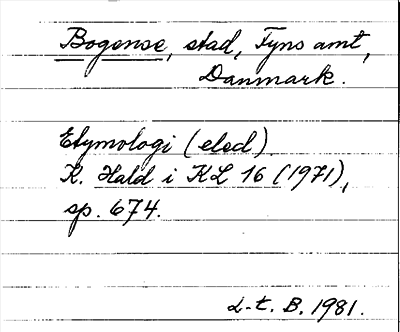 Bogense, stad, Fyns amt,
Danmark.
Etymologi (eled)
K. Hald i KL 16 (1971),
sp. 674.
L-t. B. 1981.